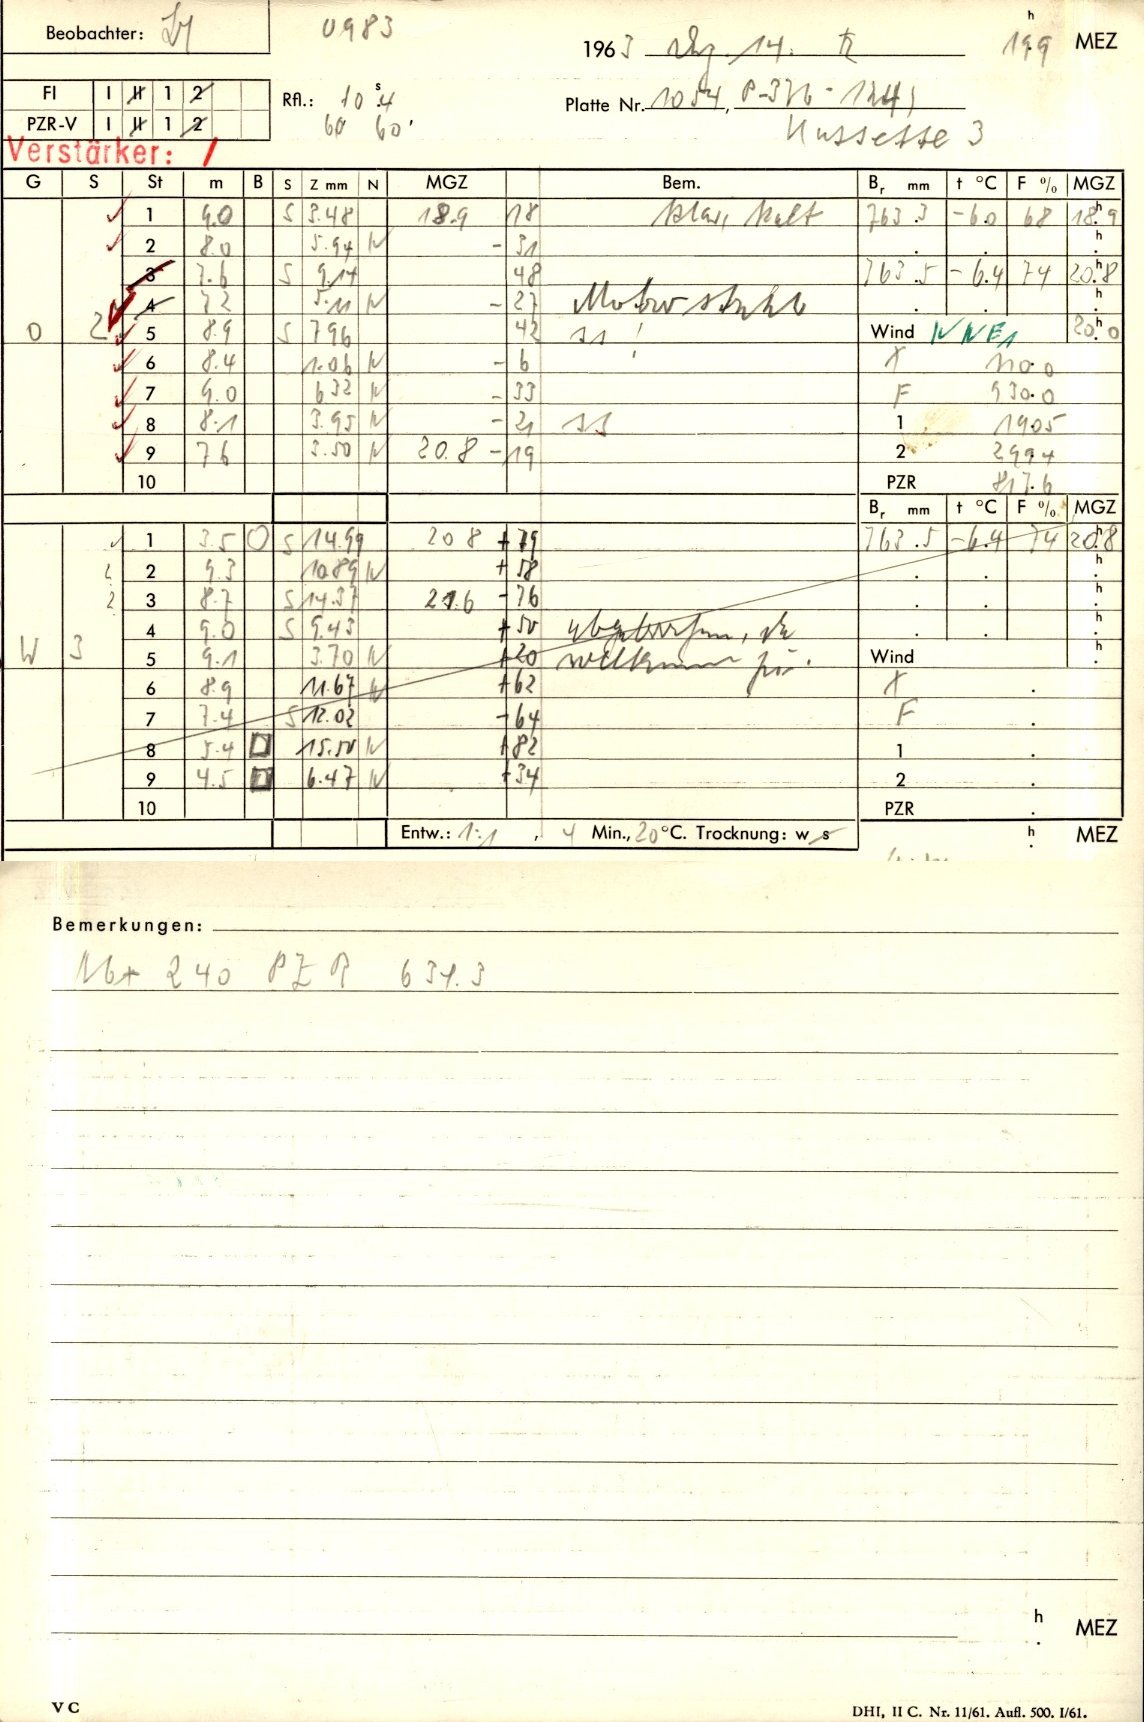 Beobachter:
0983
1963 Dez. 14. h 19.9 MEZ
FI I II 1 2
PZR-V I II 1 2
Rfl.: 10 s .4
60 60
Platte Nr. 1054, P-376-
Kassette 3
Verstärker: /
G S St m B S Z mm N MGZ Bem. Br mm t °C F % MGZ
1 9.0 S 3.48 18.9 18 klar, kalt 763.3 -6.0 68 18h.9
2 8.0 5.94 N - 31 . . h .
3 7.6 S 9.14 48 763.5 -6.4 74 20h.8
4 7.2 5.11 N - 27 . . h .
O 2 5 8.9 S 7.96 42 ! Wind NNE1 20h.0
6 8.4 1.06 N - 6 X 110.0
7 9.0 6.32 N - 33 F 930.0
8 8.1 3.95 N - 21 1 1905
9 7.6 3.50 N 20.8 - 19 2 299.4
10 PZR 817.6
Br mm t °C F % MGZ
1 3.5 O S 14.99 20.8 + 79 763.5 -6.4 74 20h.8
2 9.3 10.89 N + 58 . . h .
3 8.7 S 14.37 21.6 - 76 . . h .
4 9.0 S 9.43 + 50 abgebrochen, da . . h .
W 3 5 9.1 3.70 N + 20 Wind h .
6 8.9 11.67 N + 62 X .
7 7.4 S 12.02 - 64 F .
8 5.4 15.50 N + 82 1 .
9 4.5 6.47 N + 34 2 .
10 PZR .
Entw.: 1:1 , 4 Min., 20 °C. Trocknung: w s h . MEZ
Bemerkungen:
240 PZR 631.3
h . MEZ
V C
DHI, II C. Nr. 11/61. Aufl. 500. I/61.